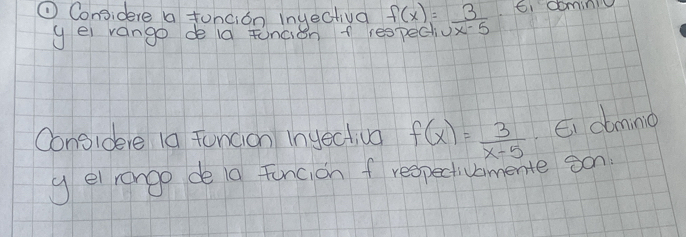 ① Considere la función Inyectiva f(x) = 3/x-5. El dominio
y el rango de la función f respectiv
Considere la función inyectiva f(x) = 3/x-5. El dominio
y el rango de la función f respectivamente son: